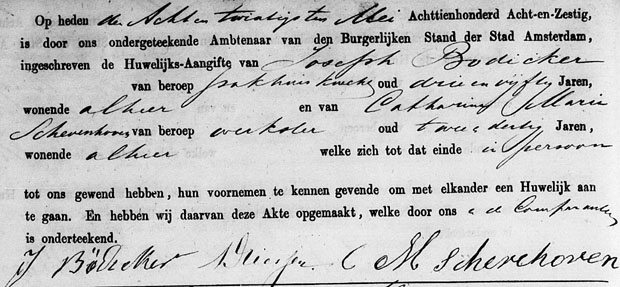 Op heden den Acht en twintigsten Mei Achttienhonderd Acht-en-Zestig,
is door ons ondergeteekende Ambtenaar van den Burgerlijken Stand der Stad Amsterdam,
ingeschreven de Huwelijks-Aangifte van Joseph Bodicker
van beroep pakhuisknecht oud drie en vijftig Jaren,
wonende alhier en van Catharina Maria
Schevenhoven van beroep werkster oud twee en dertig Jaren,
wonende alhier welke zich tot dat einde in persoon
tot ons gewend hebben, hun voornemen te kennen gevende om met elkander een Huwelijk aan
te gaan. En hebben wij daarvan deze Akte opgemaakt, welke door ons en de Comparanten
is onderteekend.
J Bödicker C M Scherehoven